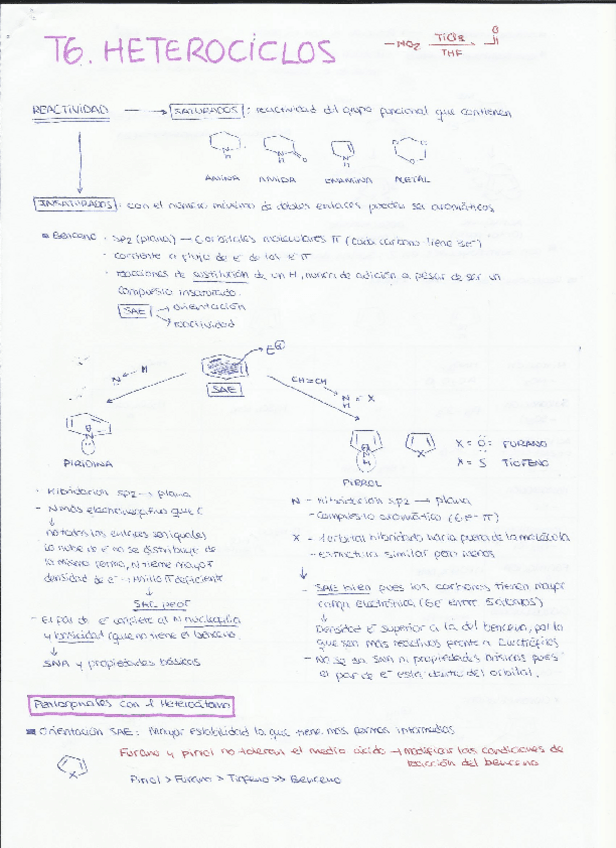 T6. HETEROCICLOS
-NO2 TiCl3 THF O H
REACTIVIDAD → SATURADOS : reactividad del grupo funcional que contienen
AMINA AMIDA ENAMINA ACETAL
INSATURADOS : con el número máximo de dobles enlaces pueden ser aromáticos
Benceno · sp2 (plana) — 6 orbitales moleculares π (cada carbono tiene 1e-)
· corriente o flujo de e- de los 6 e- π
· reacciones de sustitución de un H, nunca de adición a pesar de ser un
compuesto insaturado.
SAE → orientación
→ reactividad
E⊕
N ← H
SAE
CH=CH
N H = X
PIRIDINA
PIRROL
X = O: FURANO
X = S TIOFENO
· Hibridación sp2 → plana
- N más electronegativo que C
↓
no todos los enlaces son iguales
la nube de e- no se distribuye de
la misma forma, N tiene mayor
densidad de e- → Anillo π deficiente
↓
SAE peor
- El par de e- confiere al N nucleofilia
y basicidad (que no tiene el benceno).
↓
SNA y propiedades básicas
N - hibridación sp2 → plana
- Compuesto aromático (6e- π)
X - 1 orbital hibridado hacia fuera de la molécula
- estructura similar
↓
- SAE bien pues los carbonos tienen mayor
carga electrónica (6e- entre 5 átomos)
↓
Densidad e- superior a la del benceno, por lo
que son más reactivos frente a Electrófilos
- No se da SNA ni propiedades básicas pues
el par de e- está dentro del orbital.
Pentagonales con 1 Heteroátomo
Orientación SAE: Mayor estabilidad la que tiene más formas intermedias
X
Furano y pirrol no toleran el medio ácido → Modificar las condiciones de
reacción del benceno
Pirrol > Furano > Tiofeno >> Benceno